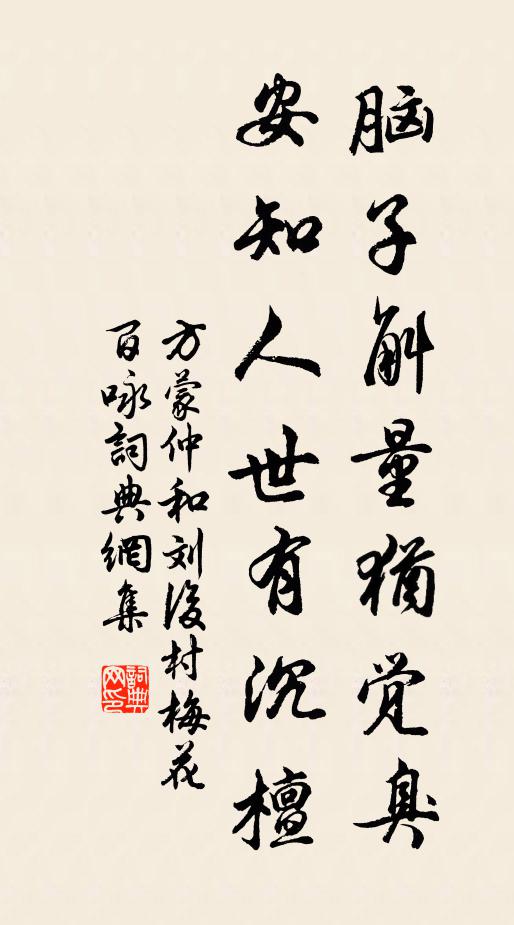 脑子斛量猶觉臭
安知人世有沉檀
方蒙仲和刘後村梅花
百咏詞典網集
詞典
网印